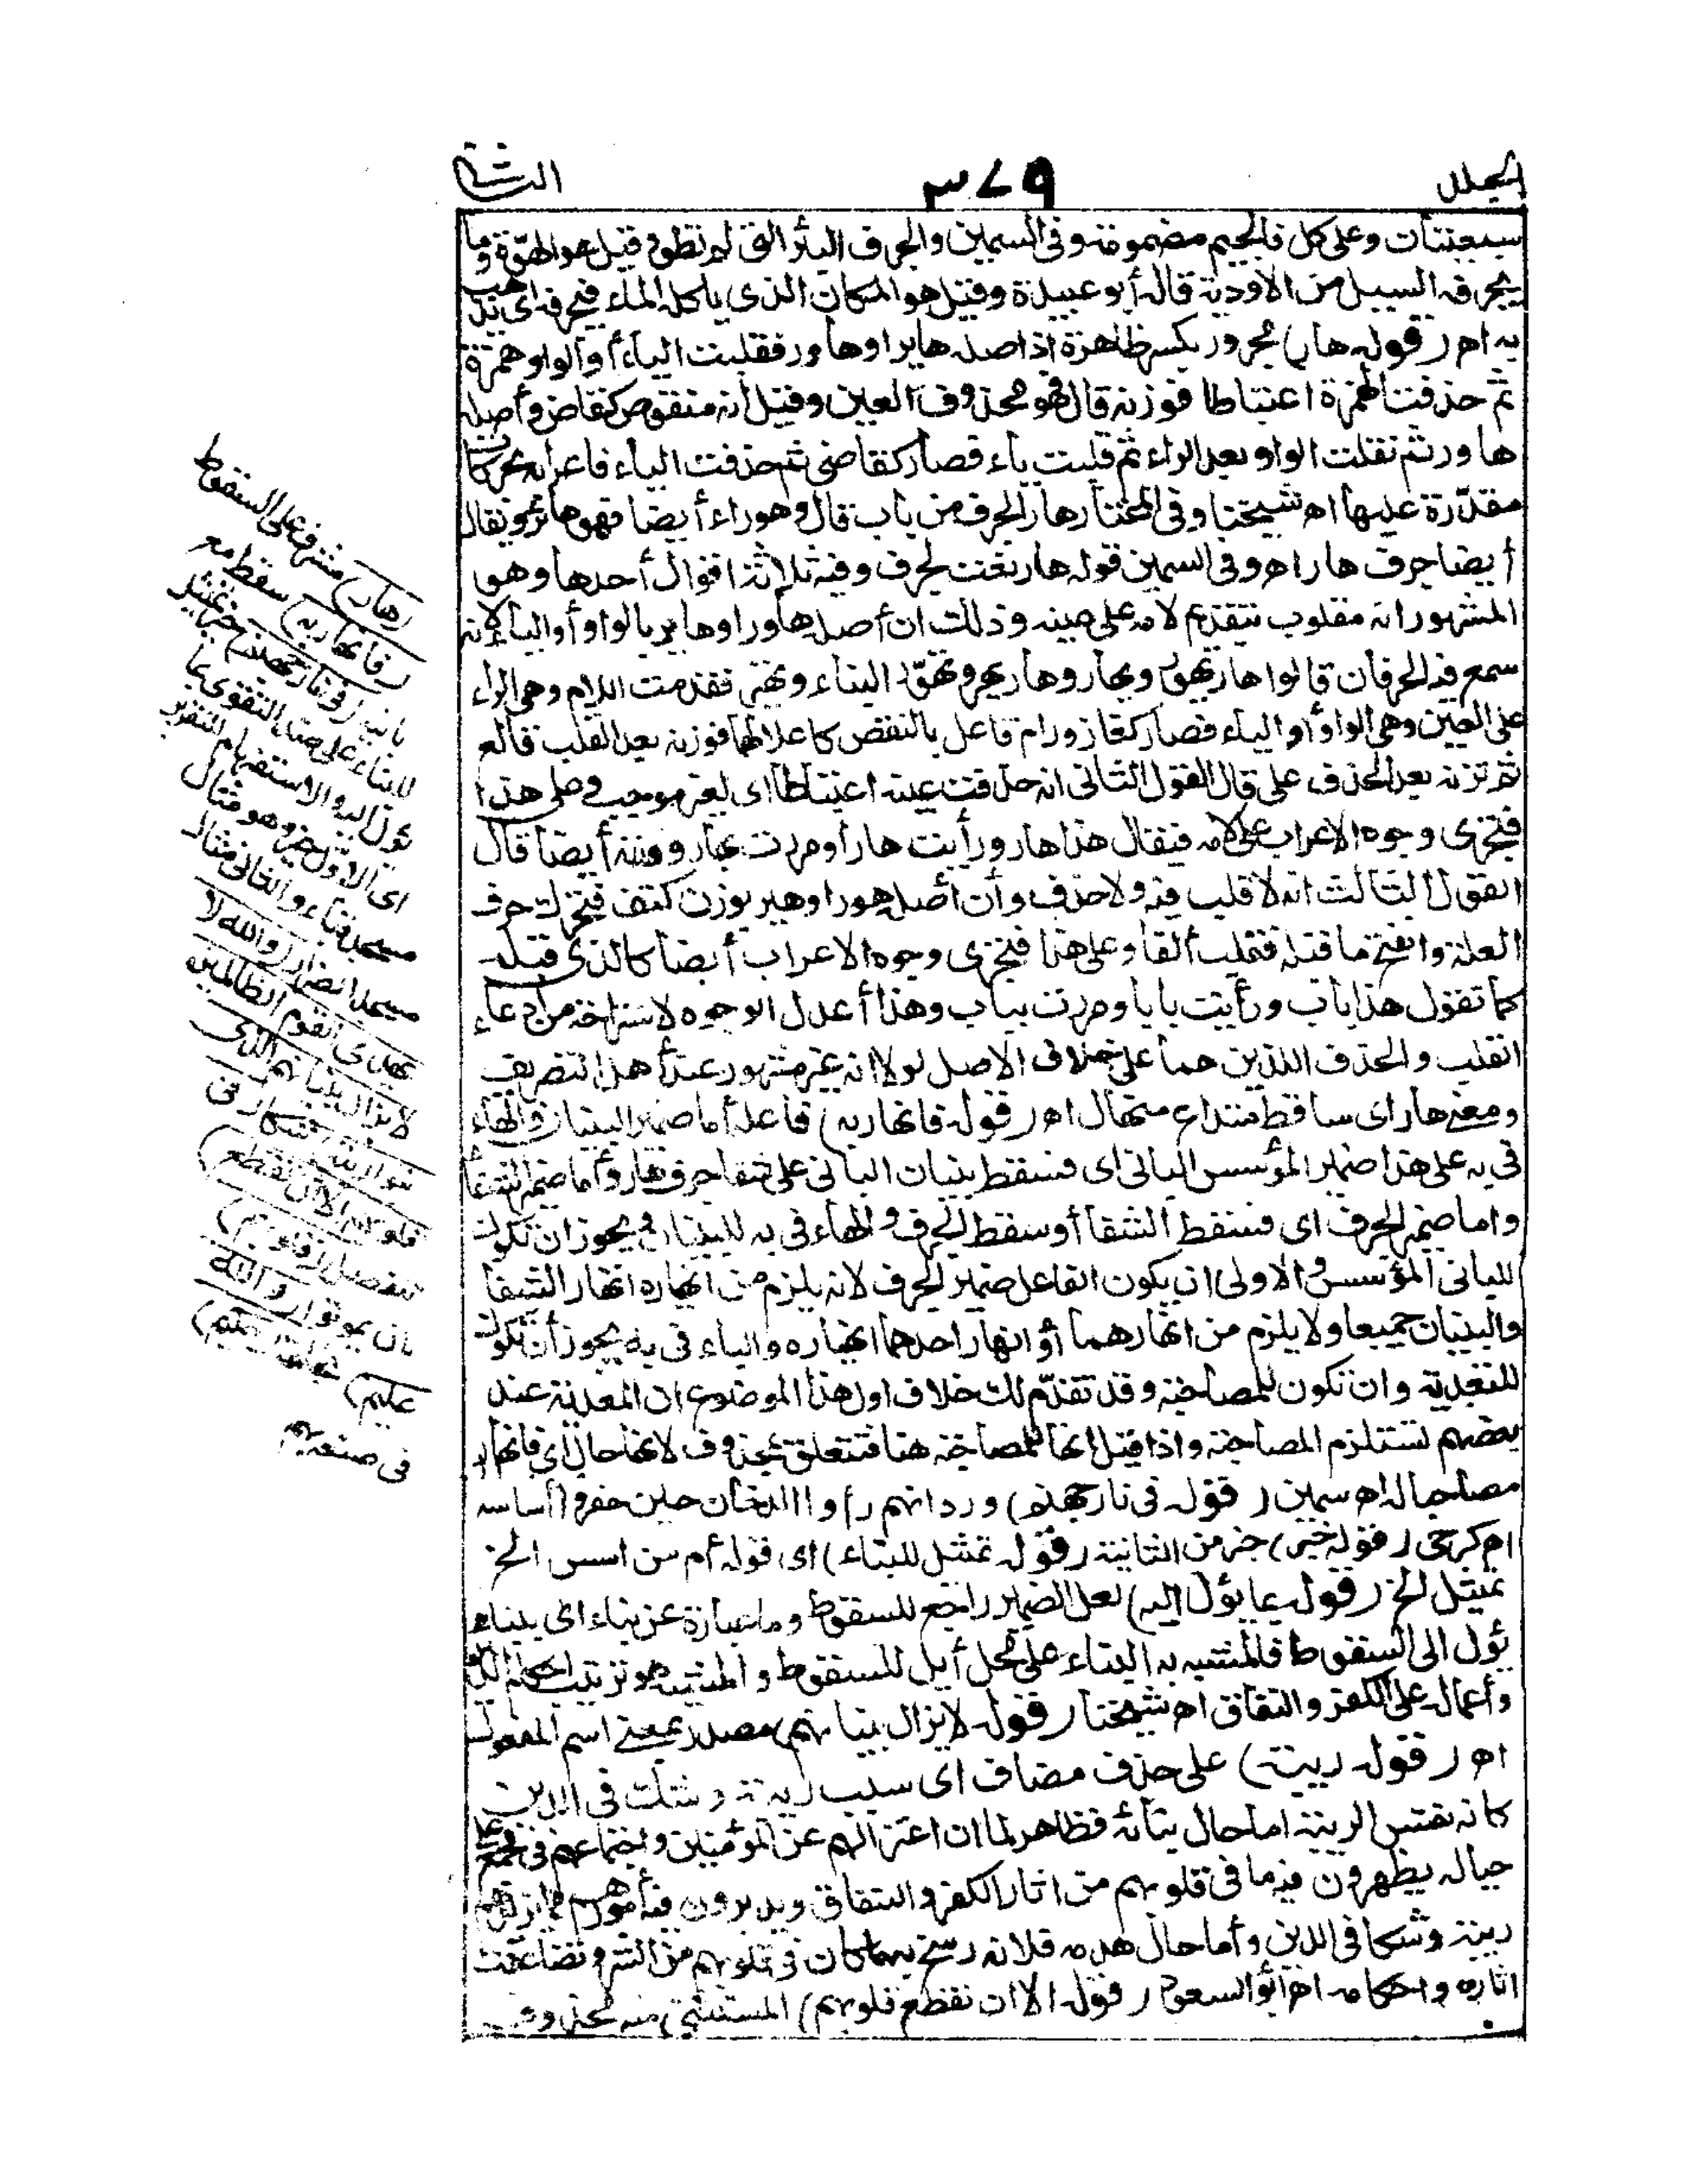 المجلد
٣٧٩
الثانى
سبعيتان وعلى كل فالجيم مضمومة وفى السمين والجرف البئر التى لم تطو وقيل هو الهوّة وما
يجرفه السيل من الاودية قاله أبو عبيدة وقيل هو المكان الذى يأكله الماء فيجرفه اى يذهب
به اهـ (قوله هار) مجرور بكسرة ظاهرة اذ اصله هاير او هاور فقلبت الياء أو الواو همزة
ثم حذفت الهمزة اعتباطا فوزنه قال فهو محذوف العين وقيل انه منقوص كقاض وأصله
هاور ثم نقلت الواو بعد الراء ثم قلبت ياء فصار كقاضى ثم حذفت الياء فاعرابه بحركات
مقدّرة عليها اهـ شيخنا وفى المختار هار الجرف من باب قال وهورا أيضا فهو هائر ويقال
أيضا جرف هار اهـ وفى السمين قوله هار نعت لجرف وفيه ثلاثة اقوال أحدها وهو
المشهور انه مقلوب بتقديم لامه على عينه وذلك ان أصله هاور او هاير بالواو أو الياء لانه
سمع فيه الحرفان قالوا هار يهور ويهار وهار يهير وتهوّر البناء وتهير فقدمت اللام وهى الراء
على العين وهى الواو أو الياء فصار كغاز ورام فاعل بالنقص كاعلالهما فوزنه بعد القلب فالع
ثم تزنه بعد الحذف على قال القول الثانى انه حذفت عينه اعتباطا اى لغير موجب وعلى هذا
فتجرى وجوه الاعراب على لامه فيقال هذا هار ورأيت هارا ومررت بهار ووزنه أيضا قال
القول الثالث انه لا قلب فيه ولا حذف وأن أصله هور او هير بوزن كتف فتحرك حرف
العلة وانفتح ما قبله فقلب ألفا وعلى هذا فتجرى وجوه الاعراب أيضا كالذى قبله
كما تقول هذا باب ورأيت بابا ومررت بباب وهذا أعدل الوجوه لاستراحته من ادعاء
القلب والحذف اللذين هما على خلاف الاصل لولا انه غير مشهور عند أهل التصريف
ومعنى هار اى ساقط متداع منهال اهـ (قوله فانهار به) فاعله أما ضمير البنيان والهاء
فى به على هذا ضمير المؤسس البانى اى فسقط بنيان البانى على شفا جرف هار وأما ضمير الشفا
واما ضمير الجرف اى فسقط الشفا أو سقط الجرف والهاء فى به للبنيان ويجوز ان تكون
للبانى المؤسس والاولى ان يكون الفاعل ضمير الجرف لانه يلزم من انهياره انهيار الشفا
والبنيان جميعا ولا يلزم من انهيارهما أو انهيار احدهما انهياره والباء فى به يجوز أن تكون
للتعدية وان تكون للمصاحبة وقد تقدّم لك خلاف اول هذا الموضوع ان المعدية عند
بعضهم تستلزم المصاحبة واذا قيل انها للمصاحبة هنا فتتعلق بمحذوف لانها حال اى فانهار
مصاحبا له اهـ سمين (قوله فى نار جهنم) ورد انهم رأوا الدخان حين حفروا أساسه
اهـ كرخى (قوله خير) خبر من الثانية (قوله تمثيل للبناء) اى قوله أم من اسس الخ
تمثيل الخ (قوله بما يؤل اليه) لعل الضمير راجع للسقوط وما عبارة عن بناء اى ببناء
يؤل الى السقوط فالمشبه به البناء على محل أيل للسقوط والمشبه هو ترتيب احكام الدين
وأعماله على الكفر والنفاق اهـ شيخنا (قوله لا يزال بنيانهم) مصدر بمعنى اسم المفعول
اهـ (قوله ريبة) على حذف مضاف اى سبب ريبة وشك فى الدين
كانه نفس الريبة اما حال بنائه فظاهر لما ان اعتزالهم عن المؤمنين واجتماعهم فى مجمع على
حياله يظهرون فيه ما فى قلوبهم من اثار الكفر والنفاق ويدبرون فيه أمورهم مما يزيدهم
ريبة وشكا فى الدين وأما حال هدمه فلانه رسخ به ما كان فى قلوبهم من الشر وتضاعفت
اثاره واحكامه اهـ ابو السعود (قوله الا ان تقطع قلوبهم) المستثنى منه محذوف
(هار) مشرف على السقوط
(فانهار به) سقط مع
بانيه (فى نار جهنم) خبر تمثيل
للبناء على ضد التقوى بما
يؤل اليه والاستفهام للتقرير
اى الاول خير وهو مثال
مسجد قباء والثانى مثال
مسجد الضرار (والله لا
يهدى القوم الظالمين
لا يزال بنيانهم الذى
بنوا ريبة) شكا (فى
قلوبهم الا ان تقطع)
تنفصل (قلوبهم)
بان يموتوا (والله
عليم) بخلقه (حكيم)
فى صنعه بهم